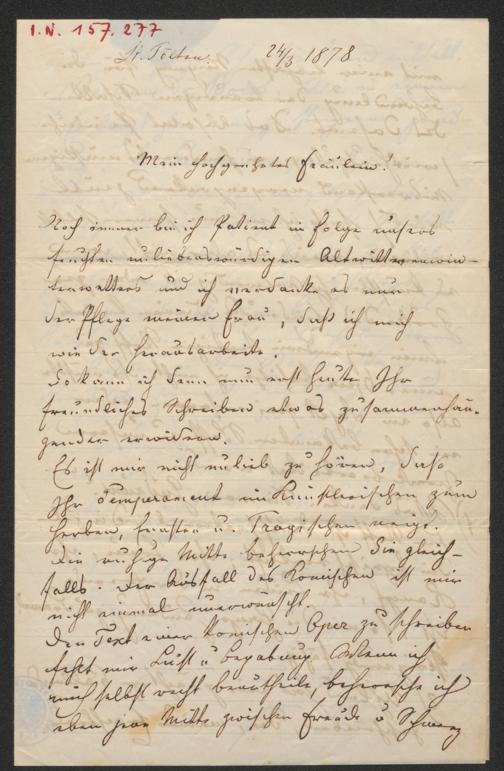 I.N. 157.277
St. Pölten. 24/3 1878
Mein hochgeehrtes Fräulein!
Noch immer bin ich Patient in Folge unsers
feuchten unliebenswürdigen
und ich verdanke es nur
der Pflege meiner Frau, daß ich mich
wieder herausarbeite.
So kann ich denn nun erst heute Ihr
freundliches Schreiben etwas zusammenhän-
gender erwidern.
Es ist mir nicht unlieb zu hören, daß
Ihr Temperament im Künstlerischen zum
Herben, Ernsten u. Tragischen neigt.
Die ruhige Mitte beherrschen Sie gleich-
falls. Der Ausfall des Komischen ist mir
nicht einmal unerwünscht.
Den Text einer komischen Oper zu schreiben
fehlt mir Lust u Begabung. Wenn ich
mich selbst recht beurtheile, beherrsche ich
eben jene Mitte zwischen Freude u Schmerz